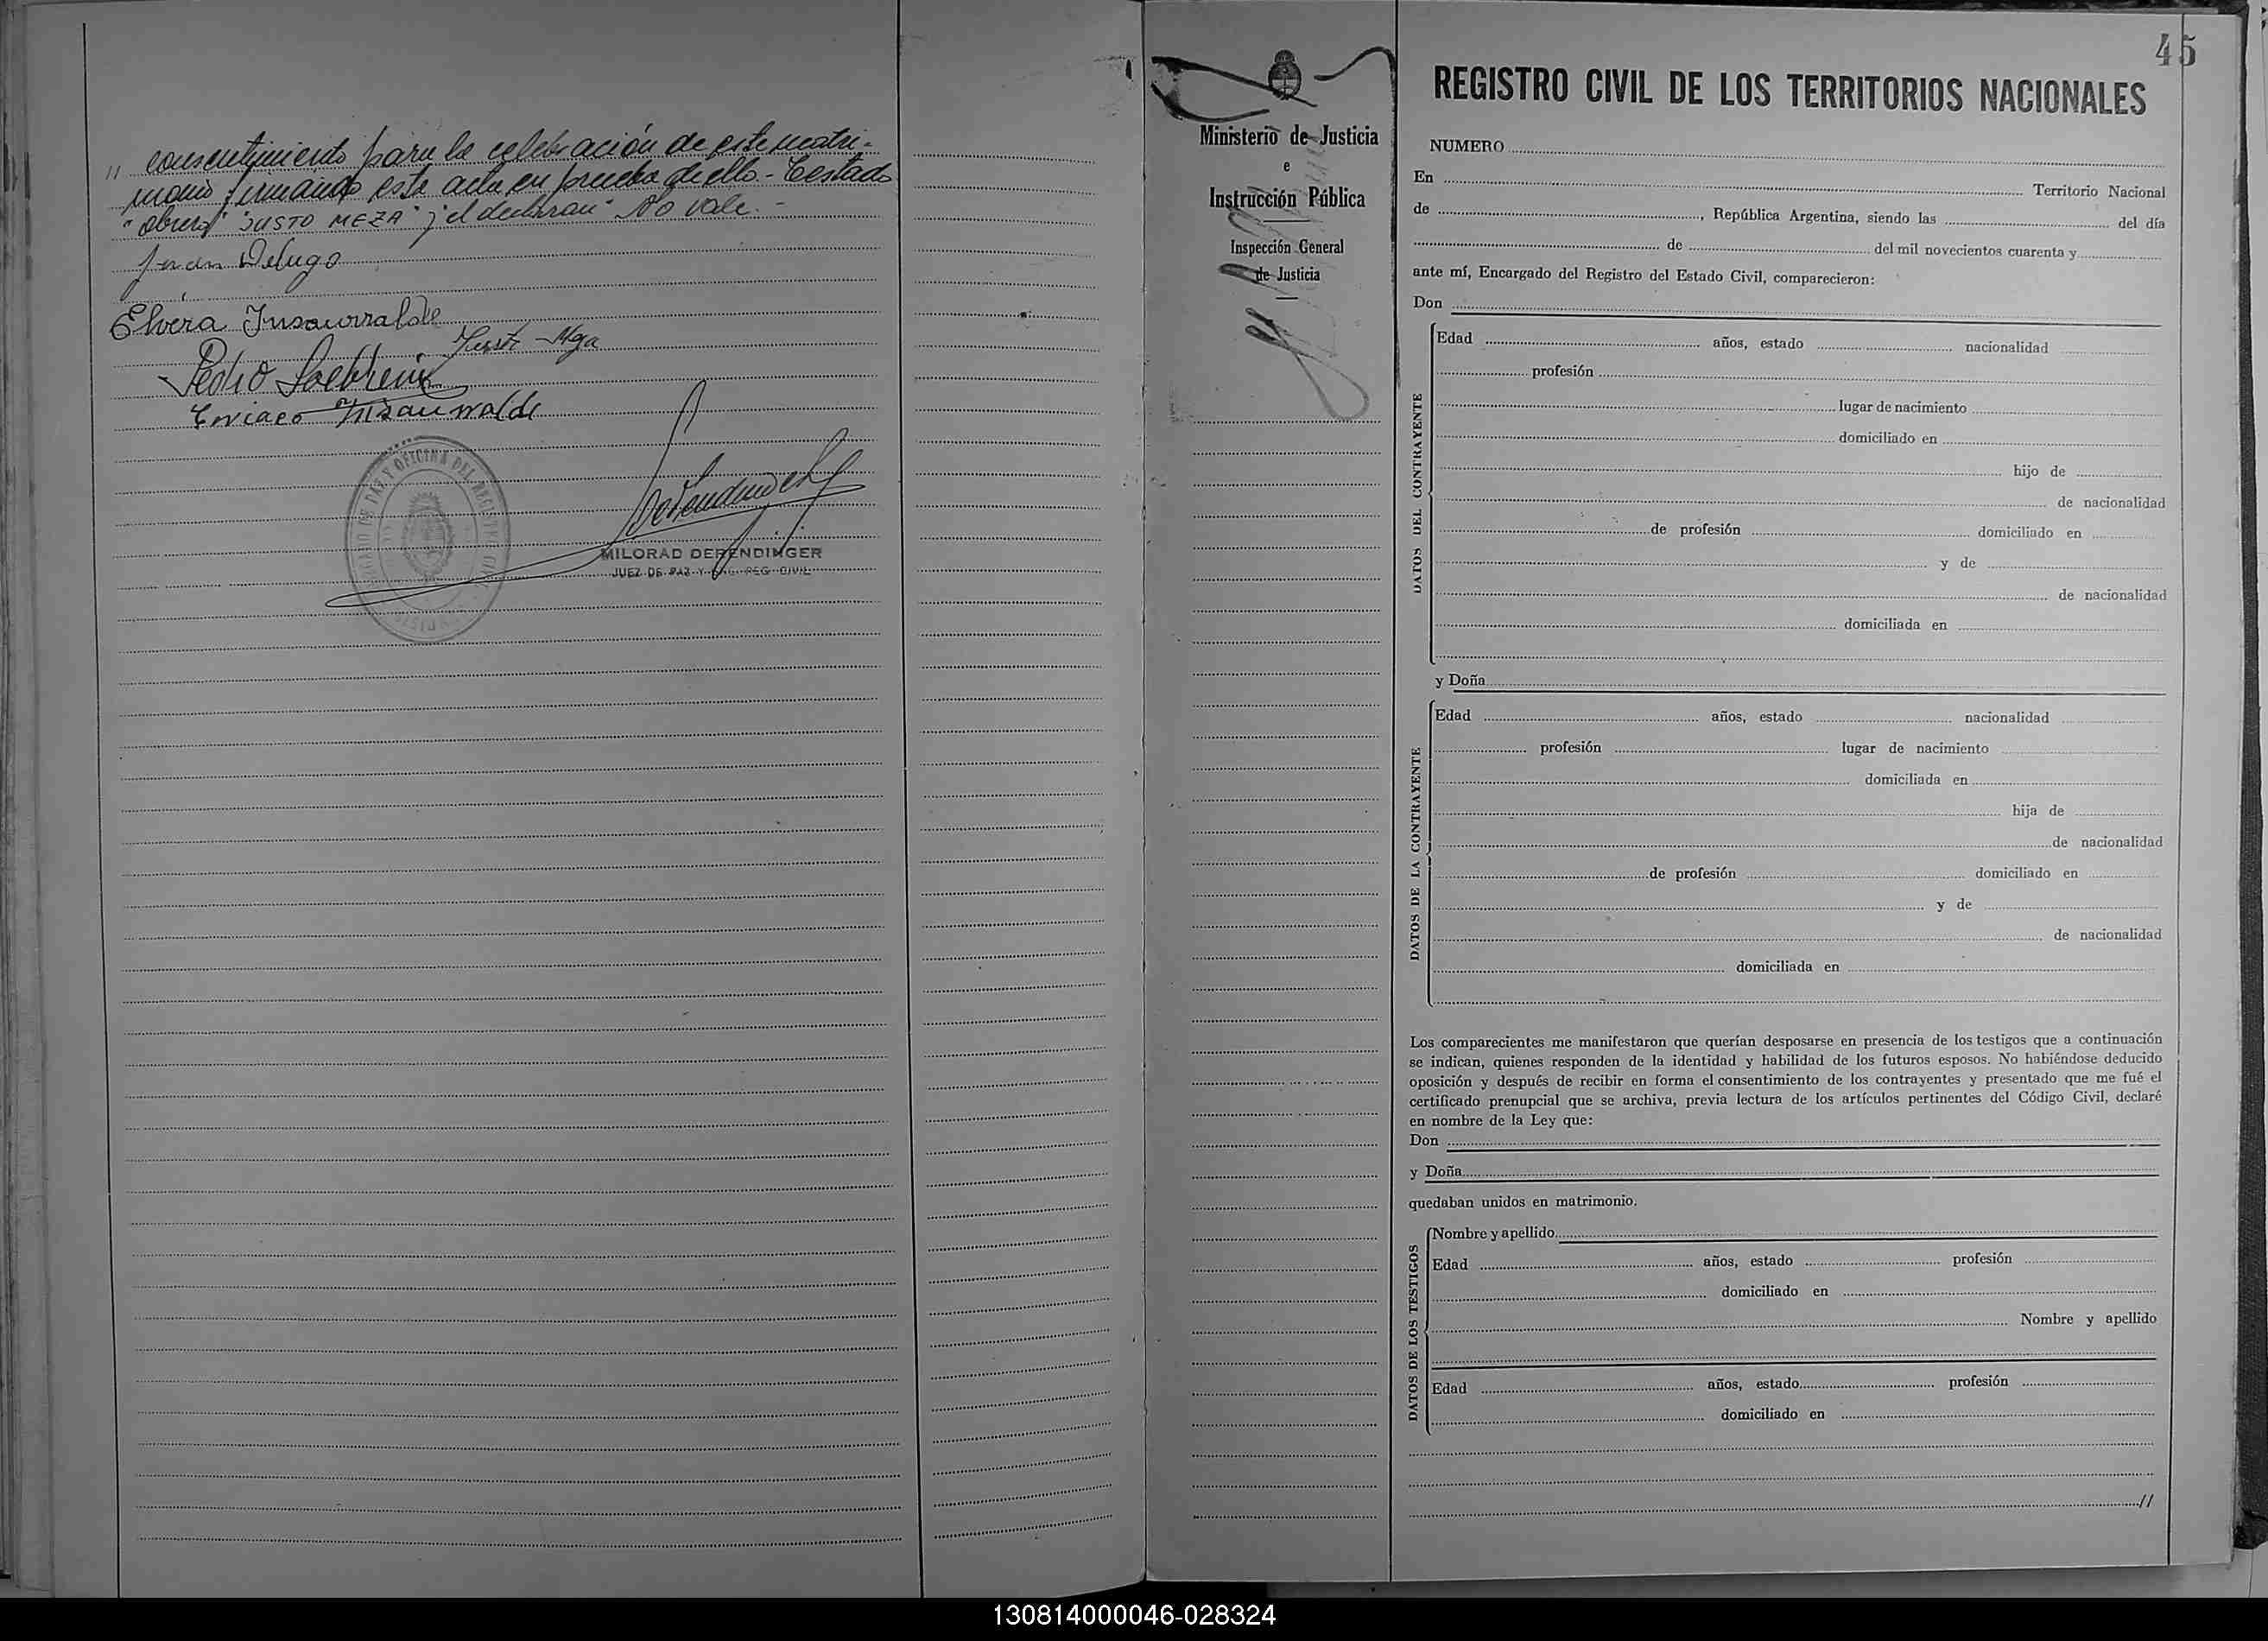 // consentimiento para la celebración de este matri-
monio firmando esta acta en prueba de ello.- Testado
"obrero" "JUSTO MEZA" y "el declaran" No vale.-
Juan Delugo
Elvira Insaurralde
Justo Mga
Pedro
Ciriaco Insaurralde
JUZGADO DE PAZ Y OFICINA DEL REGISTRO CIVIL
MILORAD DERENDINGER
JUEZ DE PAZ Y ENC. REG. CIVIL
Ministerio de Justicia
e
Instrucción Pública
Inspección General
de Justicia
45
REGISTRO CIVIL DE LOS TERRITORIOS NACIONALES
NUMERO
En Territorio Nacional
de , República Argentina, siendo las del día
de del mil novecientos cuarenta y
ante mí, Encargado del Registro del Estado Civil, comparecieron:
Don
DATOS DEL CONTRAYENTE
Edad años, estado nacionalidad
profesión
lugar de nacimiento
domiciliado en
hijo de
de nacionalidad
de profesión domiciliado en
y de
de nacionalidad
domiciliada en
y Doña
DATOS DE LA CONTRAYENTE
Edad años, estado nacionalidad
profesión lugar de nacimiento
domiciliada en
hija de
de nacionalidad
de profesión domiciliado en
y de
de nacionalidad
domiciliada en
Los comparecientes me manifestaron que querían desposarse en presencia de los testigos que a continuación
se indican, quienes responden de la identidad y habilidad de los futuros esposos. No habiéndose deducido
oposición y después de recibir en forma el consentimiento de los contrayentes y presentado que me fué el
certificado prenupcial que se archiva, previa lectura de los artículos pertinentes del Código Civil, declaré
en nombre de la Ley que:
Don
y Doña
quedaban unidos en matrimonio.
DATOS DE LOS TESTIGOS
Nombre y apellido
Edad años, estado profesión
domiciliado en
Nombre y apellido
Edad años, estado profesión
domiciliado en
//
130814000046-028324